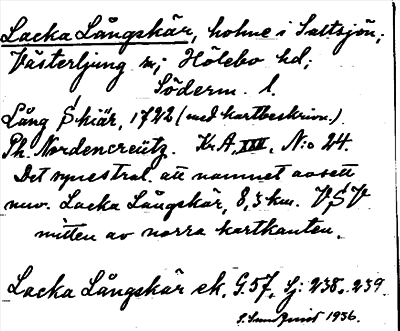 Lacka Långskär, holme i Saltsjön,
Västerljung sn; Hölebo hd;
Söderm. l.
Lång Skiär, 1722 (med kartbeskrivn.).
Ph. Nordencreütz. Kr.A, XXII, N:o 24.
Det synes tral. att namnet avsett
nuv. Lacka Långskär, 8,3 km. VSV
mitten av norra kartkanten.
Lacka Långskär ek. G.57, Sj: 238. 239.
1936.